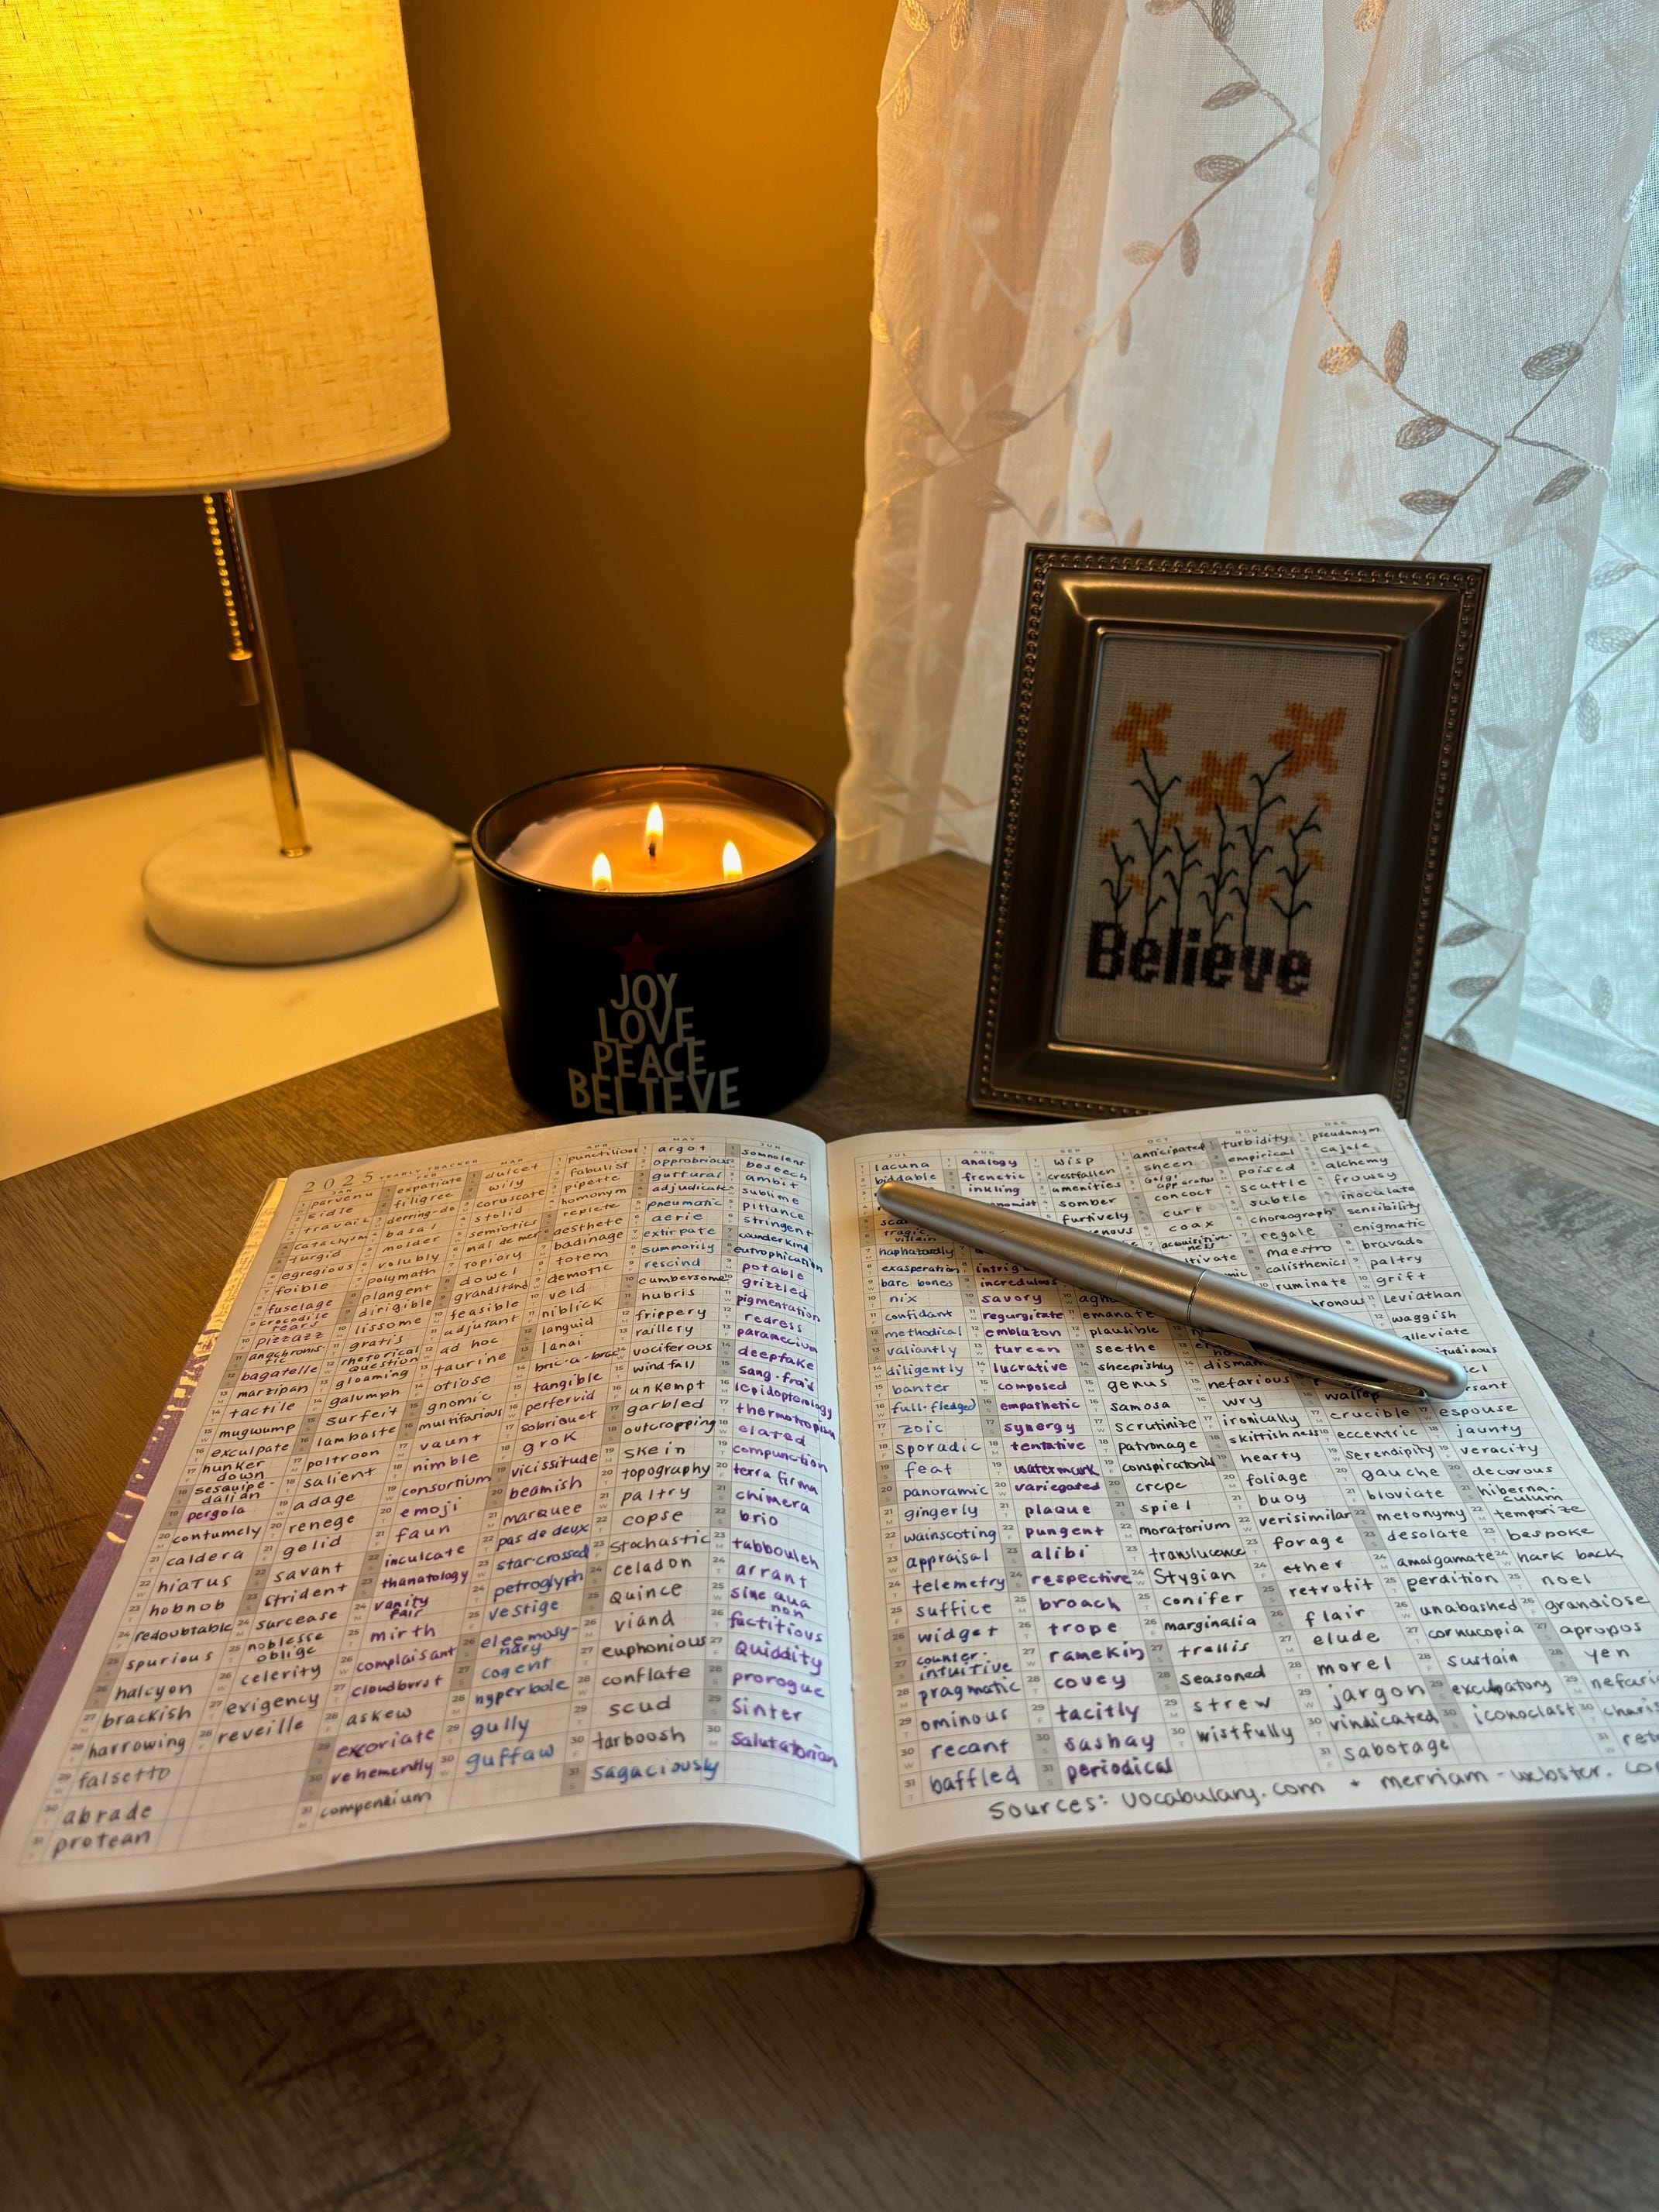 JOY
LOVE
PEACE
BELIEVE
Believe
2025 YEARLY TRACKER
JAN
parvenu
sidle
travail
cataclysm
turgid
egregious
foible
fuselage
crocodile
tears
pizzazz
anachronis-
tic
bagatelle
marzipan
tactile
mugwump
exculpate
hunker
down
sesquipe-
dalian
pergola
contumely
caldera
hiatus
hobnob
redoubtable
spurious
halcyon
brackish
harrowing
falsetto
abrade
protean
expatiate
filigree
derring-do
basal
molder
volubly
polymath
plangent
dirigible
lissome
gratis
rhetorical
question
gloaming
galumph
surfeit
lambaste
poltroon
salient
adage
renege
gelid
savant
strident
surcease
noblesse
oblige
celerity
exigency
reveille
MAR
dulcet
wily
coruscate
stolid
semiotics
mal de mer
topiary
dowel
grandstand
feasible
adjutant
ad hoc
taurine
otiose
gnomic
multifarious
vaunt
nimble
consortium
emoji
faun
inculcate
thanatology
vanity
fair
mirth
complaisant
cloudburst
askew
excoriate
vehemently
compendium
APR
punctilious
fabulist
pipette
homonym
replete
aesthete
badinage
totem
demotic
veld
niblick
languid
lanai
bric-a-brac
tangible
perfervid
sobriquet
grok
vicissitude
beamish
marquee
pas de deux
star-crossed
petroglyph
vestige
eleemosy-
nary
cogent
hyperbole
gully
guffaw
MAY
argot
opprobrious
guttural
adjudicate
pneumatic
aerie
extirpate
summarily
rescind
cumbersome
hubris
frippery
raillery
vociferous
windfall
unkempt
garbled
outcropping
skein
topography
paltry
copse
stochastic
celadon
Quince
viand
euphonious
conflate
scud
tarboosh
sagaciously
JUN
somnolent
beseech
ambit
sublime
pittance
stringent
wunderkind
eutrophication
potable
grizzled
pigmentation
redress
paramecium
deepfake
sang-froid
lepidopterology
thermotropism
elated
compunction
terra firma
chimera
brio
tabbouleh
arrant
sine qua
non
factitious
Quiddity
prorogue
Sinter
Salutatorian
JUL
lacuna
biddable
tragic
villain
haphazardly
exasperation
bare bones
nix
confidant
methodical
valiantly
diligently
banter
full-fledged
zoic
sporadic
feat
panoramic
gingerly
wainscoting
appraisal
telemetry
suffice
widget
counter-
intuitive
pragmatic
ominous
recant
baffled
AUG
analogy
frenetic
inkling
incredulous
savory
regurgitate
emblazon
tureen
lucrative
composed
empathetic
synergy
tentative
watermark
variegated
plaque
pungent
alibi
respective
broach
trope
ramekin
covey
tacitly
sashay
periodical
SEP
wisp
crestfallen
amenities
somber
furtively
emanate
plausible
seethe
sheepishly
genus
samosa
scrutinize
patronage
conspiratorial
crepe
spiel
moratorium
translucence
Stygian
conifer
marginalia
trellis
seasoned
strew
wistfully
OCT
anticipated
sheen
Golgi
apparatus
concoct
curt
coax
acquisitive-
ness
nefarious
wry
ironically
skittishness
hearty
foliage
buoy
verisimilar
forage
ether
retrofit
flair
elude
morel
jargon
vindicated
sabotage
NOV
turbidity
empirical
poised
scuttle
subtle
choreograph
regale
maestro
calisthenics
ruminate
wallop
crucible
eccentric
Serendipity
gauche
bloviate
metonymy
desolate
amalgamate
perdition
unabashed
cornucopia
sustain
exculpatory
iconoclast
DEC
pseudonym
cajole
alchemy
frowsy
inoculate
sensibility
enigmatic
bravado
paltry
grift
Leviathan
waggish
alleviate
espouse
jaunty
veracity
decorous
hiberna-
culum
temporize
bespoke
hark back
noel
grandiose
apropos
yen
Sources: vocabulary.com + merriam-webster.co